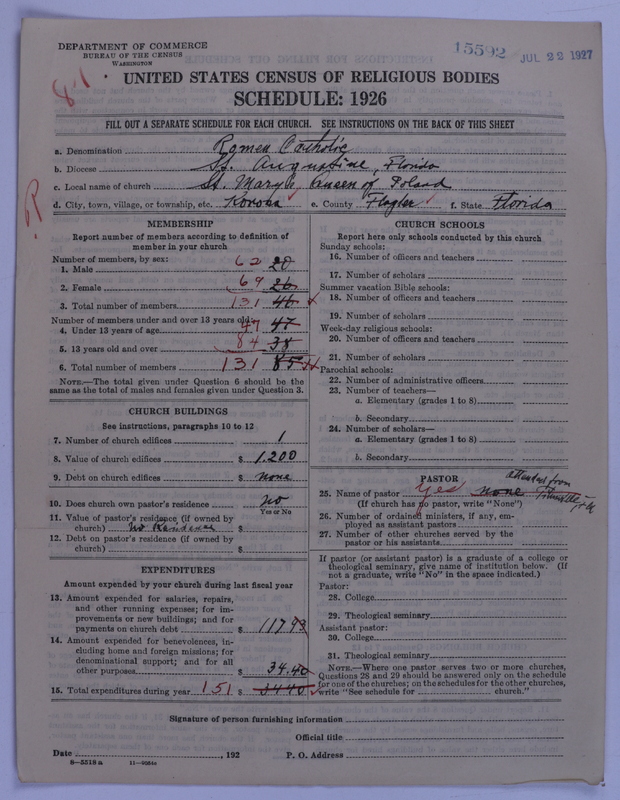 DEPARTMENT OF COMMERCE
BUREAU OF THE CENSUS
WASHINGTON
15592 JUL 22 1927
8-1
UNITED STATES CENSUS OF RELIGIOUS BODIES
SCHEDULE: 1926
FILL OUT A SEPARATE SCHEDULE FOR EACH CHURCH. SEE INSTRUCTIONS ON THE BACK OF THIS SHEET
a. Denomination Roman Catholic
b. Diocese St. Augustine, Florida
c. Local name of church St. Mary's Queen of Poland
d. City, town, village, or township, etc. Korona e. County Flagler f. State Florida
R
MEMBERSHIP
Report number of members according to definition of member in your church
Number of members, by sex:
1. Male 62 20
2. Female 69 26
3. Total number of members 131 46
Number of members under and over 13 years old:
4. Under 13 years of age 47 47
5. 13 years old and over 84 38
6. Total number of members 131 85
NOTE.—The total given under Question 6 should be the same as the total of males and females given under Question 3.
CHURCH BUILDINGS
See instructions, paragraphs 10 to 12
7. Number of church edifices 1
8. Value of church edifices $ 1.200
9. Debt on church edifices $ none
10. Does church own pastor's residence no
Yes or No
11. Value of pastor's residence (if owned by
church) no Residence $
12. Debt on pastor's residence (if owned by
church) $
EXPENDITURES
Amount expended by your church during last fiscal year
13. Amount expended for salaries, repairs,
and other running expenses; for im-
provements or new buildings; and for
payments on church debt $ 117 93
14. Amount expended for benevolences, in-
cluding home and foreign missions; for
denominational support; and for all
other purposes $ 34.40
15. Total expenditures during year 151 $ 3440
CHURCH SCHOOLS
Report here only schools conducted by this church
Sunday schools:
16. Number of officers and teachers
17. Number of scholars
Summer vacation Bible schools:
18. Number of officers and teachers
19. Number of scholars
Week-day religious schools:
20. Number of officers and teachers
21. Number of scholars
Parochial schools:
22. Number of administrative officers
23. Number of teachers—
a. Elementary (grades 1 to 8)
b. Secondary
24. Number of scholars—
a. Elementary (grades 1 to 8)
b. Secondary
PASTOR
attended from
25. Name of pastor Yes none
(If church has no pastor, write "None")
26. Number of ordained ministers, if any, em-
ployed as assistant pastors
27. Number of other churches served by the
pastor or his assistants
If pastor (or assistant pastor) is a graduate of a college or
theological seminary, give name of institution below. (If
not a graduate, write "No" in the space indicated.)
Pastor:
28. College
29. Theological seminary
Assistant pastor:
30. College
31. Theological seminary
NOTE.—Where one pastor serves two or more churches,
Questions 28 and 29 should be answered only on the schedule
for one of the churches; on the schedules for the other churches,
write "See schedule for church."
Signature of person furnishing information
Official title
Date , 192 P. O. Address
8-5518 a 11-9984